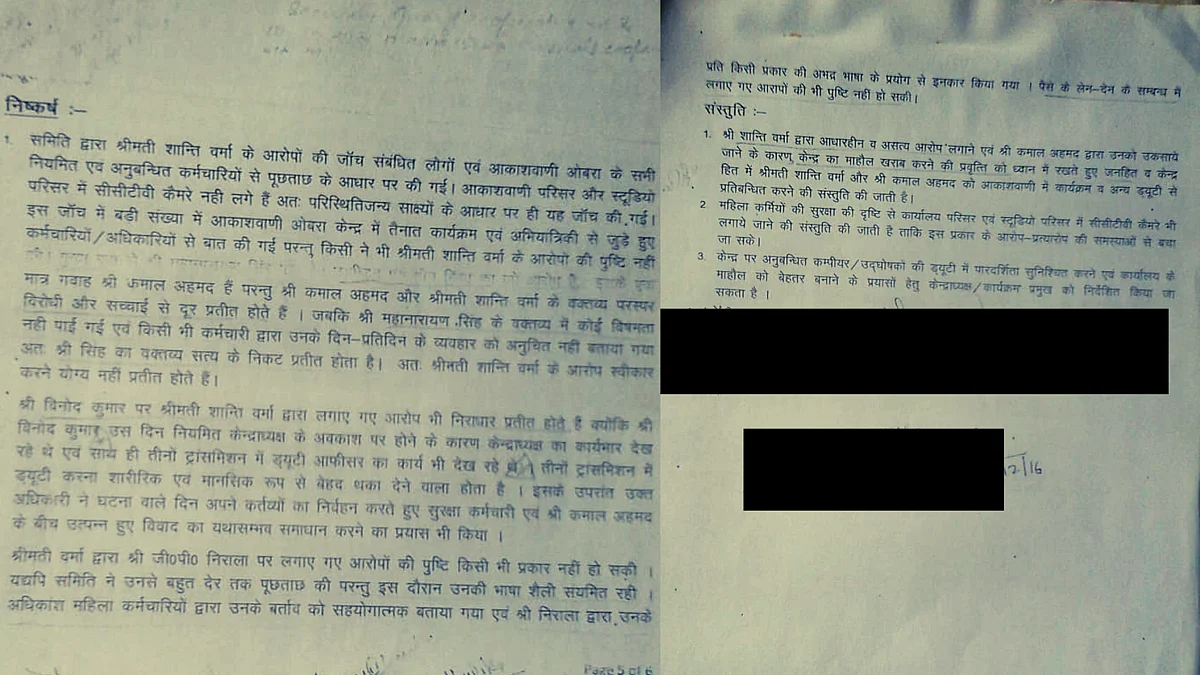 निष्कर्ष :–
1. समिति द्वारा श्रीमती शान्ति वर्मा के आरोपों की जॉच संबंधित लोगों एवं आकाशवाणी ओबरा के सभी
नियमित एवं अनुबन्धित कर्मचारियों से पूछताछ के आधार पर की गई। आकाशवाणी परिसर और स्टूडियो
परिसर में सीसीटीवी कैमरे नही लगे हैं अतः परिस्थितिजन्य साक्ष्यों के आधार पर ही यह जॉच की गई।
इस जॉच में बडी संख्या में आकाशवाणी ओबरा केन्द्र में तैनात कार्यक्रम एवं अभियात्रिकी से जुडे हुए
कर्मचारियों/अधिकारियों से बात की गई परन्तु किसी ने भी श्रीमती शान्ति वर्मा के आरोपों की पुष्टि नहीं
मात्र गवाह श्री कमाल अहमद हैं परन्तु श्री कमाल अहमद और श्रीमती शान्ति वर्मा के वक्तव्य परस्पर
विरोधी और सच्चाई से दूर प्रतीत होते हैं । जबकि श्री महानारायण सिंह के वक्तव्य में कोई विषमता
नही पाई गई एवं किसी भी कर्मचारी द्वारा उनके दिन–प्रतिदिन के व्यवहार को अनुचित नहीं बताया गया
अतः श्री सिंह का वक्तव्य सत्य के निकट प्रतीत होता है। अतः श्रीमती शान्ति वर्मा के आरोप स्वीकार
करने योग्य नहीं प्रतीत होते हैं।
श्री विनोद कुमार पर श्रीमती शान्ति वर्मा द्वारा लगाए गए आरोप भी निराधार प्रतीत होते हैं क्योंकि श्री
विनोद कुमार उस दिन नियमित केन्द्राध्यक्ष के अवकाश पर होने के कारण केन्द्राध्यक्ष का कार्यभार देख
रहे थे एवं साथ ही तीनों ट्रांसमिशन में ड्यूटी आफीसर का कार्य भी देख रहे थे । तीनों ट्रांसमिशन में
ड्यूटी करना शारीरिक एवं मानसिक रूप से बेहद थका देने वाला होता है । इसके उपरांत उक्त
अधिकारी ने घटना वाले दिन अपने कर्तव्यों का निर्वहन करते हुए सुरक्षा कर्मचारी एवं श्री कमाल अहमद
के बीच उत्पन्न हुए विवाद का यथासम्भव समाधान करने का प्रयास भी किया ।
श्रीमती वर्मा द्वारा श्री जी0पी0 निराला पर लगाए गए आरोपों की पुष्टि किसी भी प्रकार नहीं हो सकी ।
यद्यपि समिति ने उनसे बहुत देर तक पूछताछ की परन्तु इस दौरान उनकी भाषा शैली संयमित रही ।
अधिकांश महिला कर्मचारियों द्वारा उनके बर्ताव को सहयोगात्मक बताया गया एवं श्री निराला द्वारा उनके
Page 5 of 6
प्रति किसी प्रकार की अभद्र भाषा के प्रयोग से इनकार किया गया । पैसे के लेन–देन के सम्बन्ध में
लगाए गए आरापों की भी पुष्टि नहीं हो सकी।
संस्तुति :–
1. श्री शान्ति वर्मा द्वारा आधारहीन व असत्य आरोप लगाने एवं श्री कमाल अहमद द्वारा उनको उकसाये
जाने के कारण केन्द्र का माहौल खराब करने की प्रवृत्ति को ध्यान में रखते हुए जनहित व केन्द्र
हित में श्रीमती शान्ति वर्मा और श्री कमाल अहमद को आकाशवाणी में कार्यक्रम व अन्य ड्यूटी से
प्रतिबन्धित करने की संस्तुति की जाती है।
2. महिला कर्मियों की सुरक्षा की दृष्टि से कार्यालय परिसर एवं स्टूडियो परिसर में सीसीटीवी कैमरे भी
लगाये जाने की संस्तुति की जाती है ताकि इस प्रकार के आरोप–प्रत्यारोप की समस्याओं से बचा
जा सके।
3. केन्द्र पर अनुबन्धित कम्पीयर/उद्घोषकों की ड्यूटी में पारदर्शिता सुनिश्चित करने एवं कार्यालय के
माहौल को बेहतर बनाने के प्रयासों हेतु केन्द्राध्यक्ष/कार्यक्रम प्रमुख को निर्देशित किया जा
सकता है ।
12/16